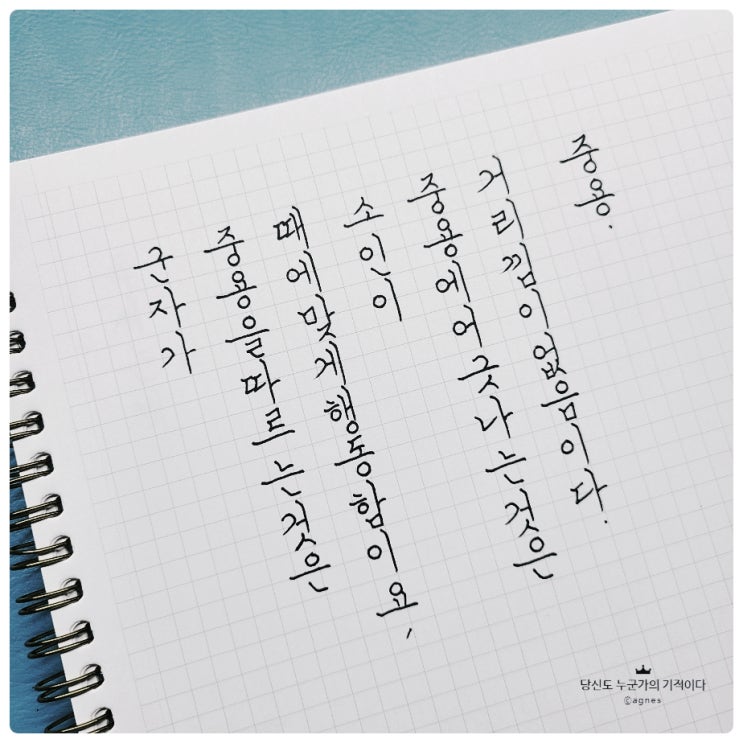 군자가
중용을 따르는 것은
때에 맞게 행동함이요,
소인이
중용에 어긋나는 것은
거리낌이 없음이다.
중용.
당신도 누군가의 기적이다
©agnes